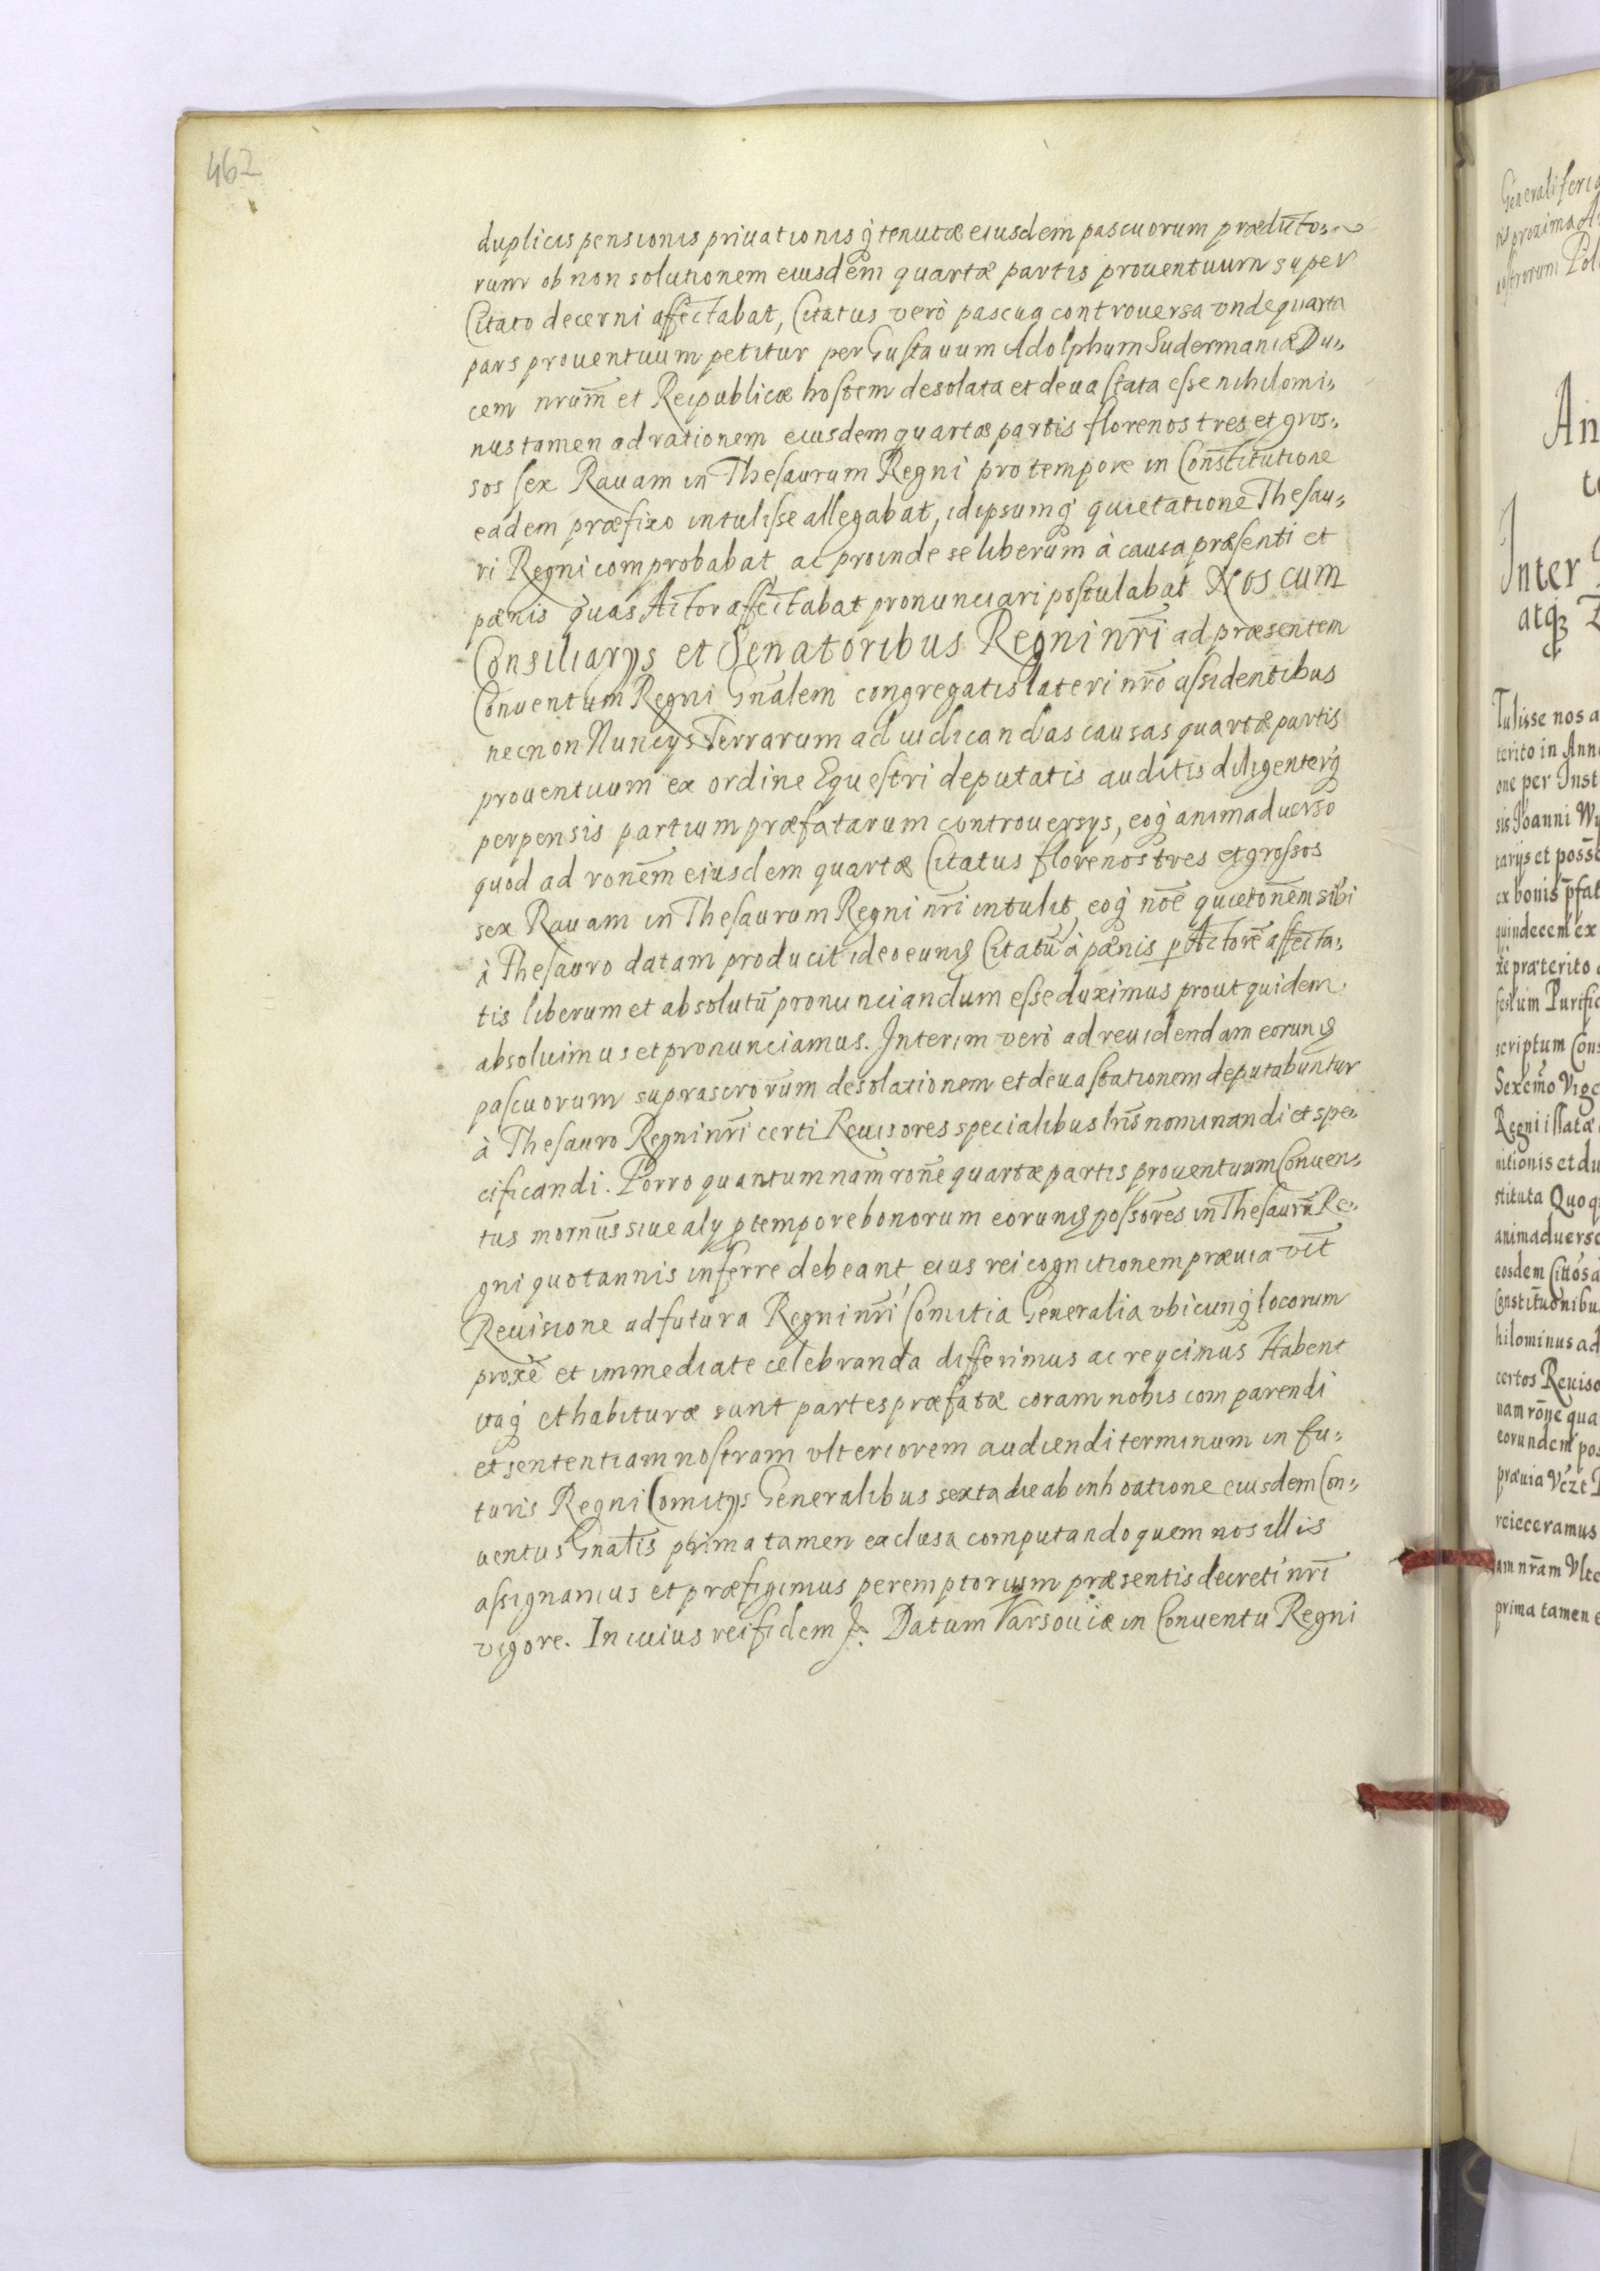 462
duplicis pensionis priuationisq́ tenutæ eiusdem pascuorum prædicto-
rum ob non solutionem eiusdem quartæ partis prouentuum super
Citato decerni affectabat, Citatus verò pascua controuersa vnde quarta
pars prouentuum petitur per Gustauum Adolphum Sudermaniæ Du-
cem nrum̃ et Reipublicæ hostem desolata et deuastata esse nihilomi-
nus tamen ad rationem eiusdem quartæ partis florenos tres et gros-
sos sex Rauam in Thesaurum Regni pro tempore in Constitutione
eadem præfixo intulisse allegabat, idipsumq́ quietatione Thesau-
ri Regni comprobabat ac proinde se liberum à causa præsenti et
pænis quas Actor affectabat pronunciari postulabat Nos cum
Consiliarijs et Senatoribus Regni nrĩ ad præsentem
Conuentum Regni Gñalem congregatis lateri nrõ assidentibus
necnon Nuncijs Terrarum ad iudicandas causas quartæ partis
prouentuum ex ordine Equestri deputatis auditis diligenterq́
perpensis partium præfatarum controuersijs, eoq́ animaduerso
quod ad ronẽm eiusdem quartæ Citatus florenos tres et grossos
sex Rauam in Thesaurum Regni nrĩ intulit, eoq́ nõe quietonẽm sibi
à Thesauro datam producit ideo eundẽ Citatũ à pænis p Actorẽ affecta-
tis liberum et absolutũ pronunciandum esse duximus prout quidem
absoluimus et pronunciamus. Interim verò ad reuidendam eorundẽ
pascuorum suprascrorũm desolationem et deuastationem deputabuntur
à Thesauro Regni nrĩ certi Reuisores specialibus lrĩs nominandi et spe-
cificandi. Porro quantumnam rone̅ quartæ partis prouentuum Conuen-
tus mornũs siue alij p tempore bonorum eorundẽ possorẽs in Thesaurũ Re-
gni quotannis inferre debeant, eius rei cognitionem præuia vt̃
Reuisione ad futura Regni nrĩ Comitia Generalia vbicunq́ locorum
proxẽ et immediate celebranda differimus ac reijcimus Habent
itaq́ et habituræ sunt partes præfatæ coram nobis comparendi
et sententiam nostram vlteriorem audiendi terminum in fu-
turis Regni Comitijs Generalibus sexta die ab inhoatione eiusdem Con-
uentus Gnãlis prima tamen exclusa computando quem nos illis
assignamus et præfigimus peremptorium præsentis decreti nrĩ
vigore. In cuius rei fidem &. Datum Varsouiæ in Conuentu Regni
Generali feria
proxima
nostrorum Pol
An
Inter
atq́
Tulisse nos a
terito in Ann
one per Inst
sis Joanni Wy
tarijs et possẽ
ex bonis p̃fat
quindecem ex
xẽ præterito
festum Purific
scriptum Cons
Sexcm̃o Vige
Regni illatæ
nitionis et du
stituta Quoq
animaduerso
eosdem Cittos a
Constitũonibus
hilominus ad
certos Reuiso
nam rone̅ qua
eorundem pos
præuia Vczt
reieceramus
am nrãm Vlte
prima tamen e